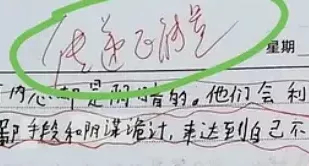 传递正能量
星期
内心都是阴暗的。他们会利
鄙手段和阴谋诡计,来达到自己不